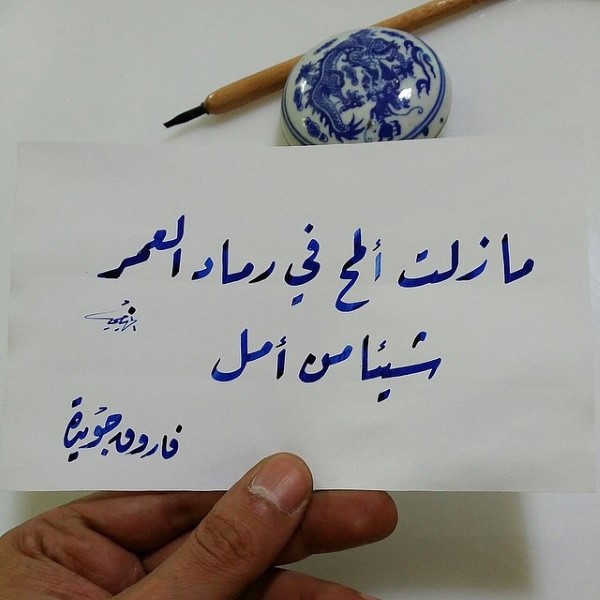 ما زلت ألمح في رماد العمر
شيئا من أمل
فاروق جويدة